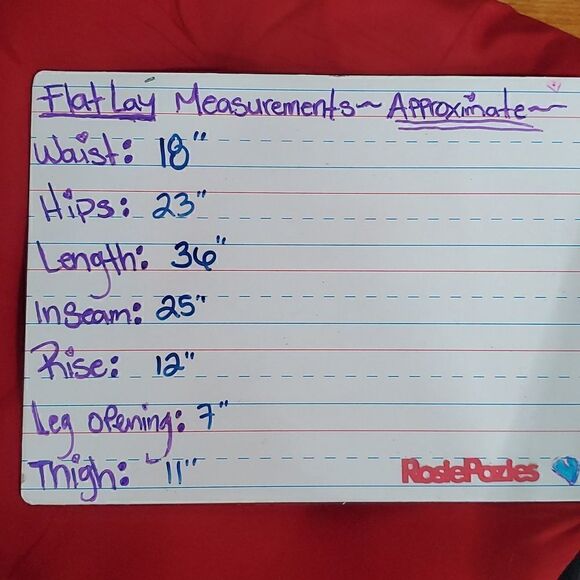 Flat Lay Measurements~ Approximate~
Waist: 18"
Hips: 23"
Length: 36"
Inseam: 25"
Rise: 12"
Leg opening: 7"
Thigh: 11"
RosiePozies